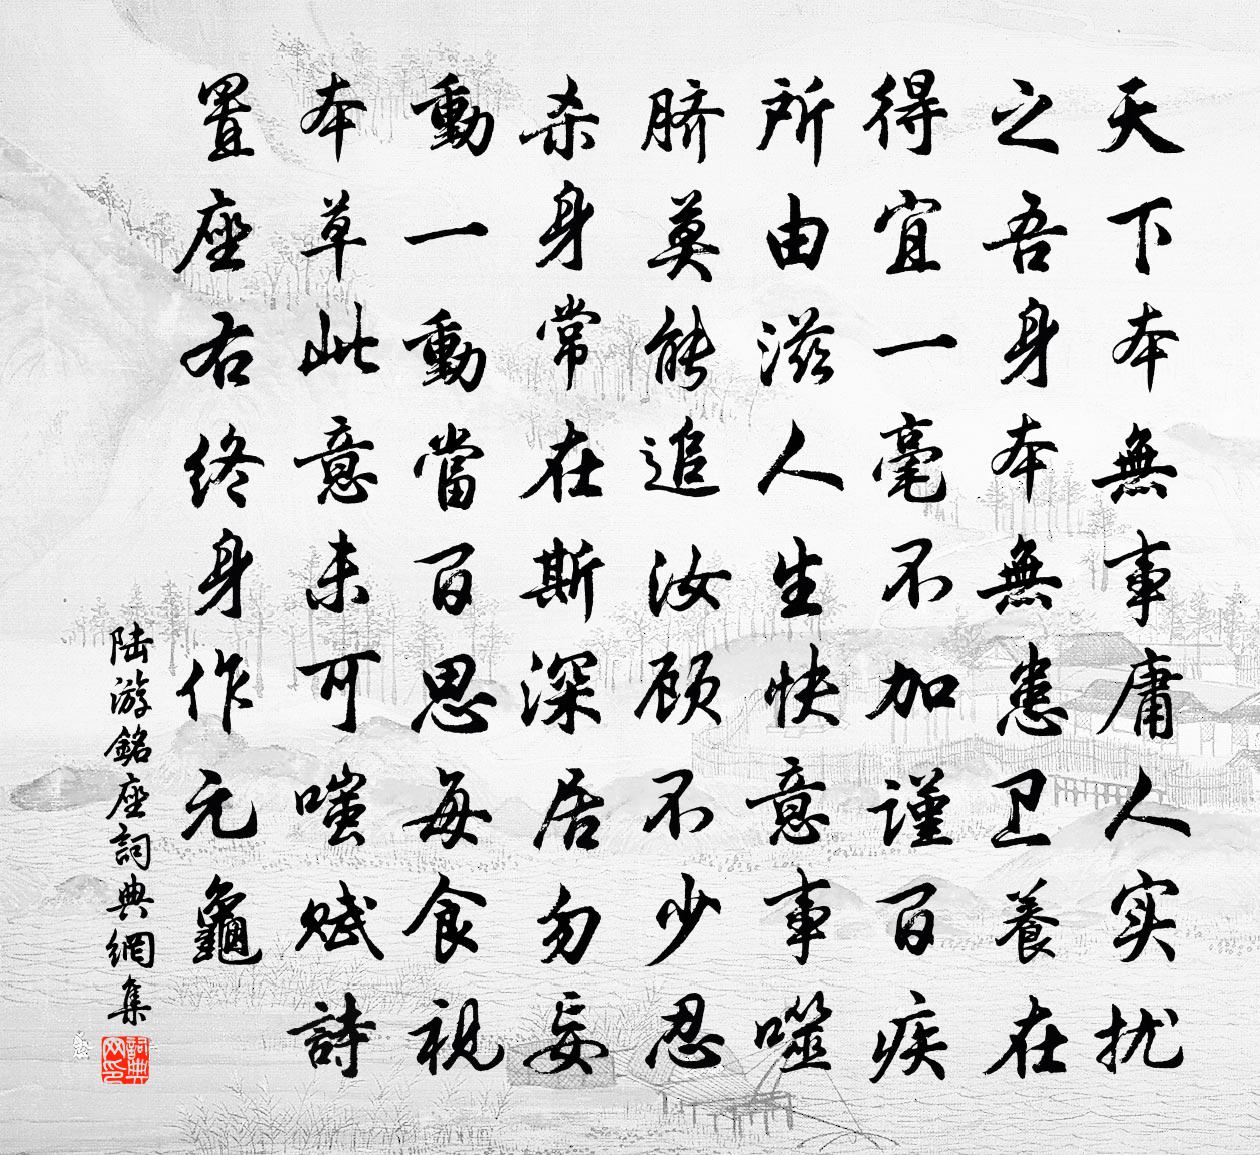 天下本無事庸人实扰
之吾身本無患卫養在
得宜一毫不加谨百疾
所由滋人生快意事噬
脐莫能追汝顾不少忍
杀身常在斯深居勿妄
動一動當百思每食視
本草此意未可嗤赋詩
置座右终身作元龜
陆游銘座詞典網集
詞典网